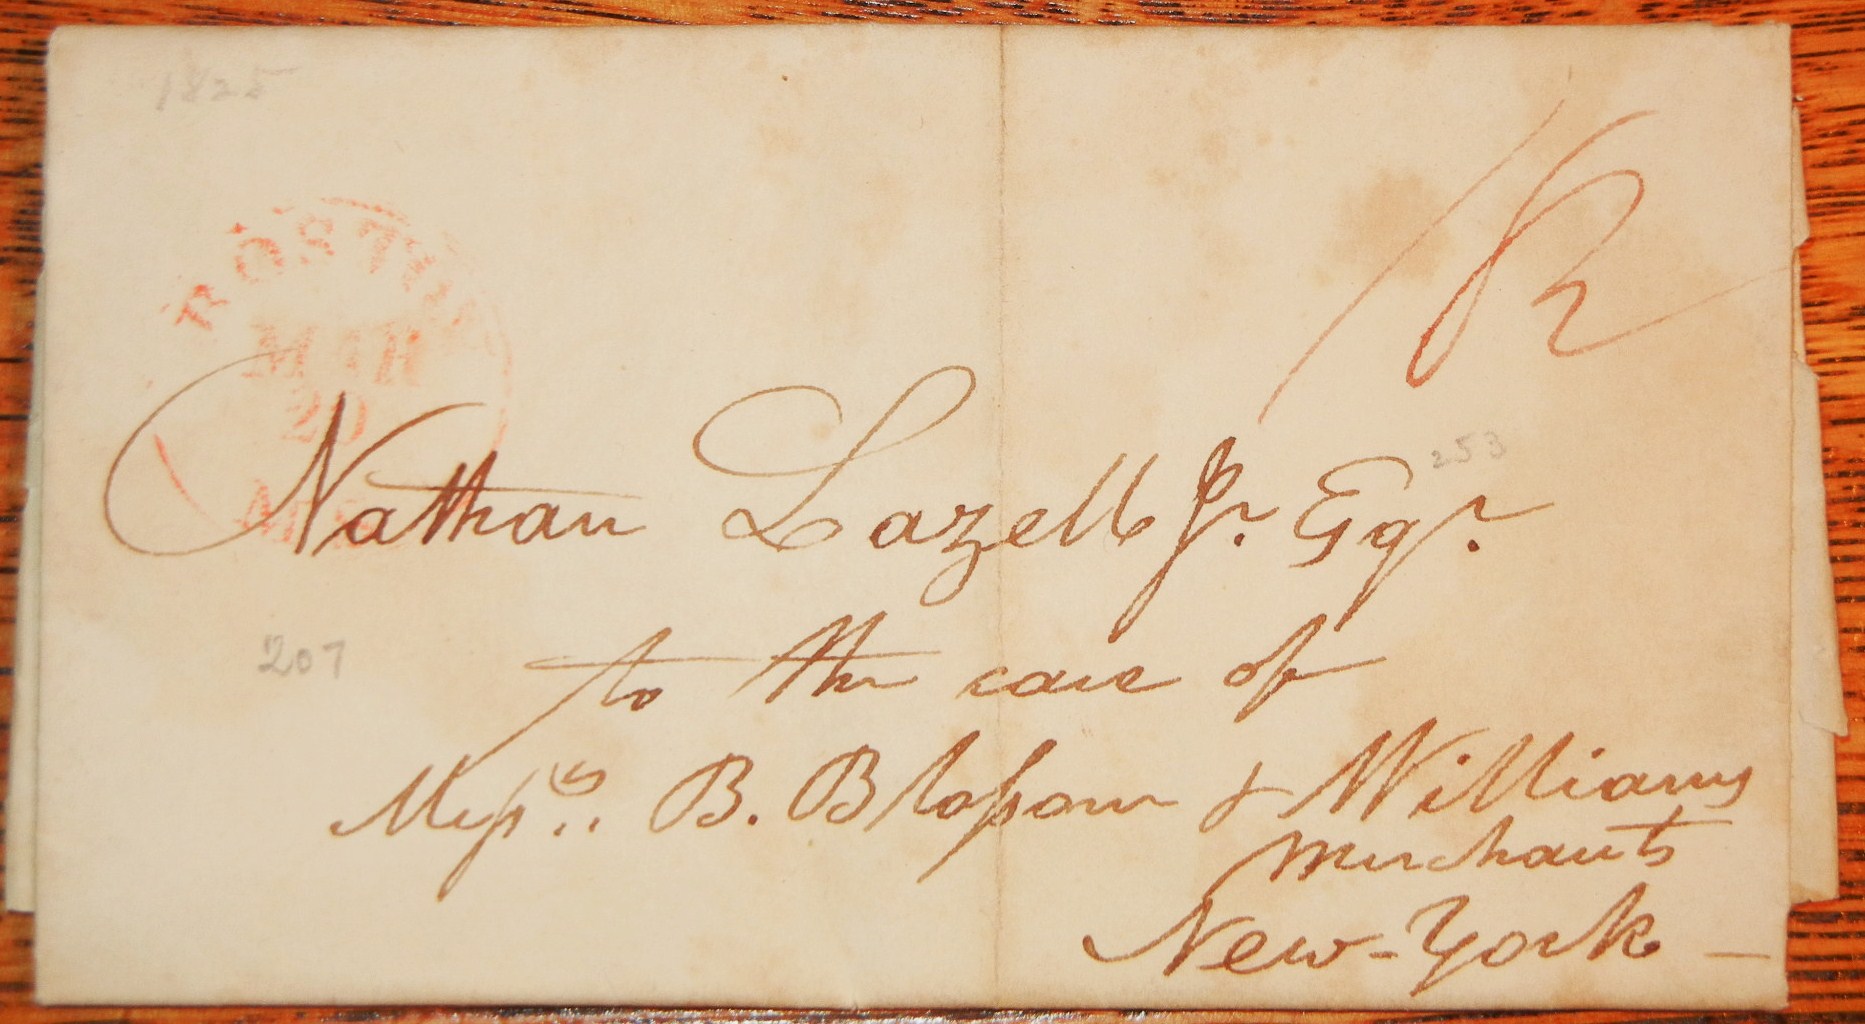 1825
BOSTON
MAR
20
MS
Nathan Lazell Jr. Esqr.
253
207
to the care of
Messrs. B. Blossom & Williams
Merchants
New-York